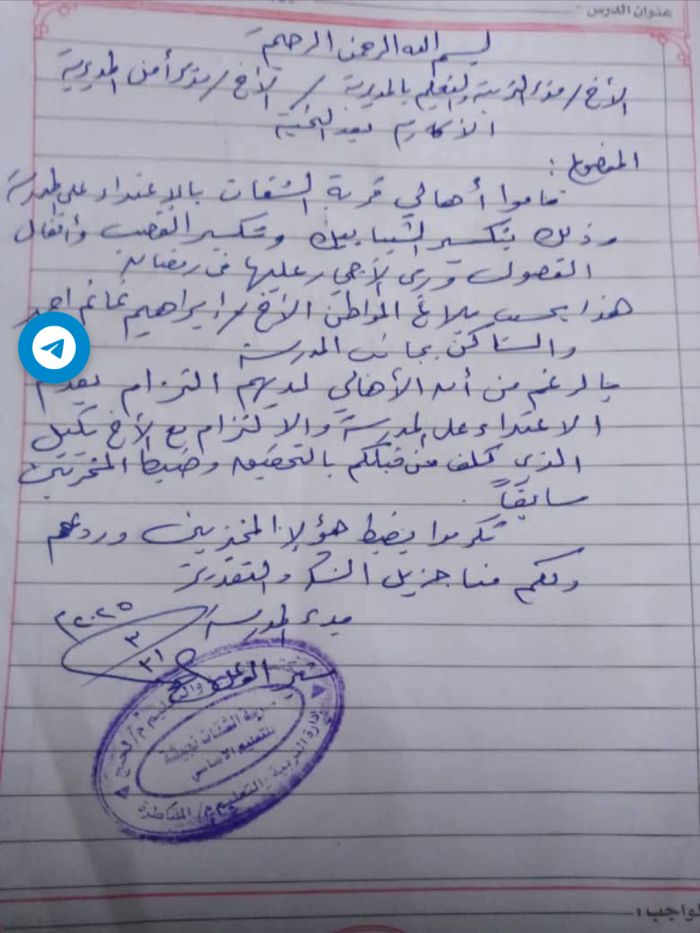 عنوان الدرس:
بسم الله الرحمن الرحيم
الأخ/ مدير التربية والتعليم بالمديرية / الأخ/ مدير أمن المديرية
الأكارم بعد التحية
الموضوع:
قاموا أهالي قرية الشقات بالاعتداء على المدرسة
وذلك بتكسير الشبابيك وتكسير القصب وأقفال
الفصول ورمي الأحجار عليها في رمضان
هذا بحسب بلاغ المواطن الأخ/ إبراهيم غانم احمد
والساكن بجانب المدرسة
بالرغم من أن الأهالي لديهم التزام بعدم
الاعتداء على المدرسة والالتزام مع الأخ
الذي كلف من قبلكم بالتحقيق وضبط المخربين
سابقاً
تكرموا بضبط هؤلاء المخربين وردعهم
ولكم منا جزيل الشكر والتقدير
مدير المدرسة
٣١
٣
٢٠٢٥م
للتعليم الأساسي
إدارة التربية والتعليم م/ المقاطرة
الواجب: